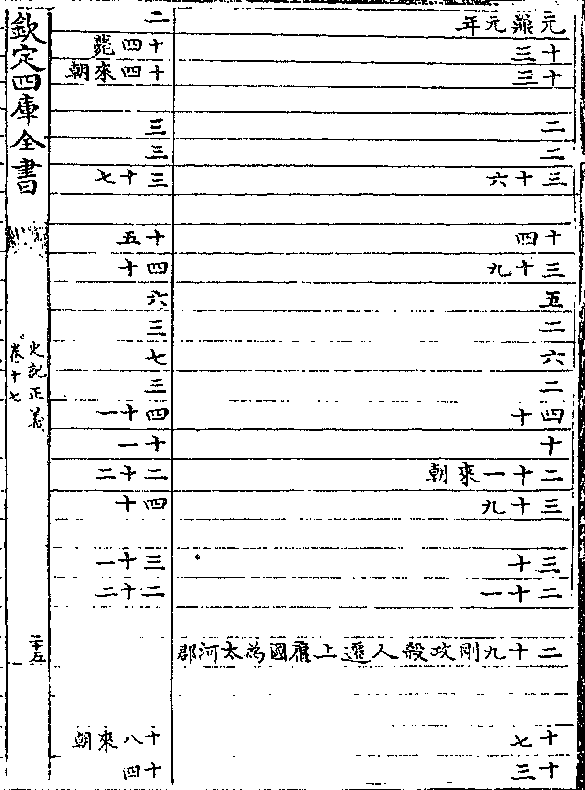 元鼎元年
十三
十三
二
二
三十六
十四
三十九
五
二
六
二
四十
十
二十一來朝
三十九
三十
二十一
二十九剛攻殺人遷上庸國為太河郡
十七
十三
二
十四薨
十四來朝
三
三
三十七
十五
四十
六
三
七
三
四十一
十一
二十二
四十
三十一
二十二
十八來朝
十四
欽定四庫全書
史記正義
卷十七
二十五